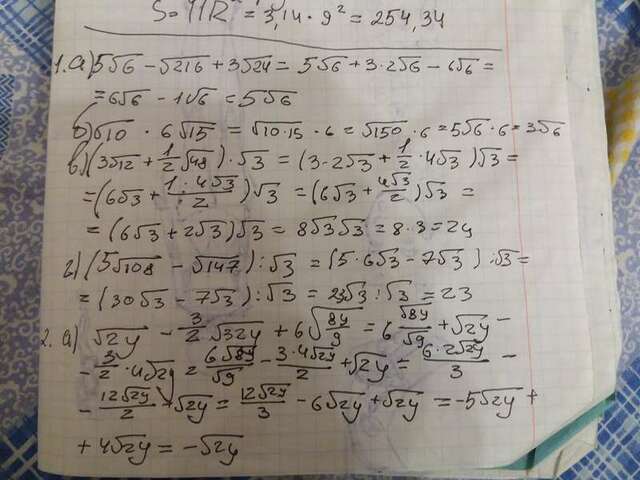 S = ПR² = 3,14 · 9² = 254,34
1. а) 5√6 − √216 + 3√24 = 5√6 + 3·2√6 − 6√6 =
= 6√6 − 1√6 = 5√6
б) √10 · 6√15 = √10·15 · 6 = √150 · 6 = 5√6 · 6 = 3√6
в) (3√12 + 1/2 √48) · √3 = (3·2√3 + 1/2 · 4√3)√3 =
= (6√3 + 1·4√3/2)√3 = (6√3 + 4√3/2)√3 =
= (6√3 + 2√3)√3 = 8√3√3 = 8·3 = 24
г) (5√108 − √147) : √3 = (5·6√3 − 7√3) : √3 =
= (30√3 − 7√3) : √3 = 23√3 : √3 = 23
2. а) √2y − 3/2 √32y + 6√8y/9 = 6 √8y/√9 + √2y −
− 3/2 · 4√2y = 6√8y/√9 − 3·4√2y/2 + √2y = 6·2√2y/3 −
− 12√2y/2 + √2y = 12√2y/3 − 6√2y + √2y = −5√2y +
+ 4√2y = −√2y